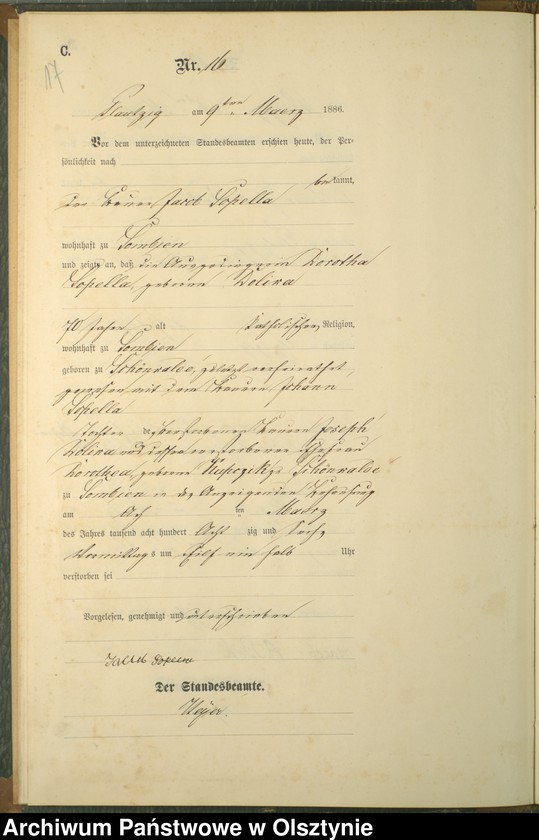 C.
17
Nr. 16
Plautzig am 9ten Maerz 1886.
Vor dem unterzeichneten Standesbeamten erschien heute, der Per-
sönlichkeit nach
bekannt,
der Bauer Jacob Sopella
wohnhaft zu
und zeigte an, daß die Dorothea
Sopella, geborene Kolina
70 Jahre alt katholischer Religion,
wohnhaft zu
geboren zu verheirathet
gewesen mit dem Bauern Johann
Sopella
Tochter des verstorbenen Bauern Joseph
Kolina und dessen verstorbene Ehefrau
Dorothea, geborene
zu in des Anzeigenden Behausung
am Acht ten Maerz
des Jahres tausend acht hundert Acht zig und sechs
Vormittags um eilf ein halb Uhr
verstorben sei
Vorgelesen, genehmigt und unterschrieben
Der Standesbeamte.
Archiwum Państwowe w Olsztynie